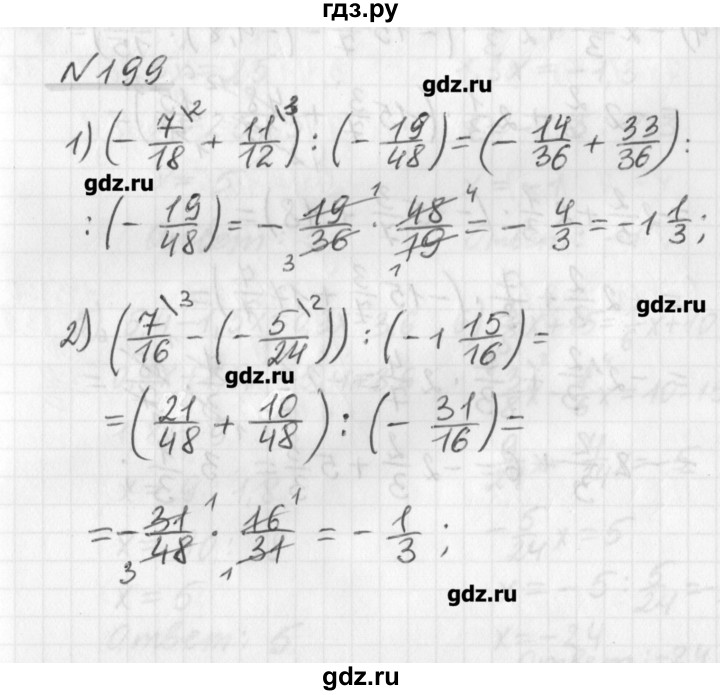 гдз.ру
N199
gdz.ru
1) (- 7/18 \2 + 11/12 \3) : (- 19/48) = (- 14/36 + 33/36) :
gdz.ru
: (- 19/48) = - 19/36 · 48/19 = - 4/3 = -1 1/3 ;
1 4
3 1
gdz.ru
2) (7/16 \3 - (- 5/24 \2)) : (-1 15/16) =
gdz.ru
= (21/48 + 10/48) : (- 31/16) =
= - 31/48 · 16/31 = - 1/3 ;
1 1
3 1
gdz.ru
gdz.ru